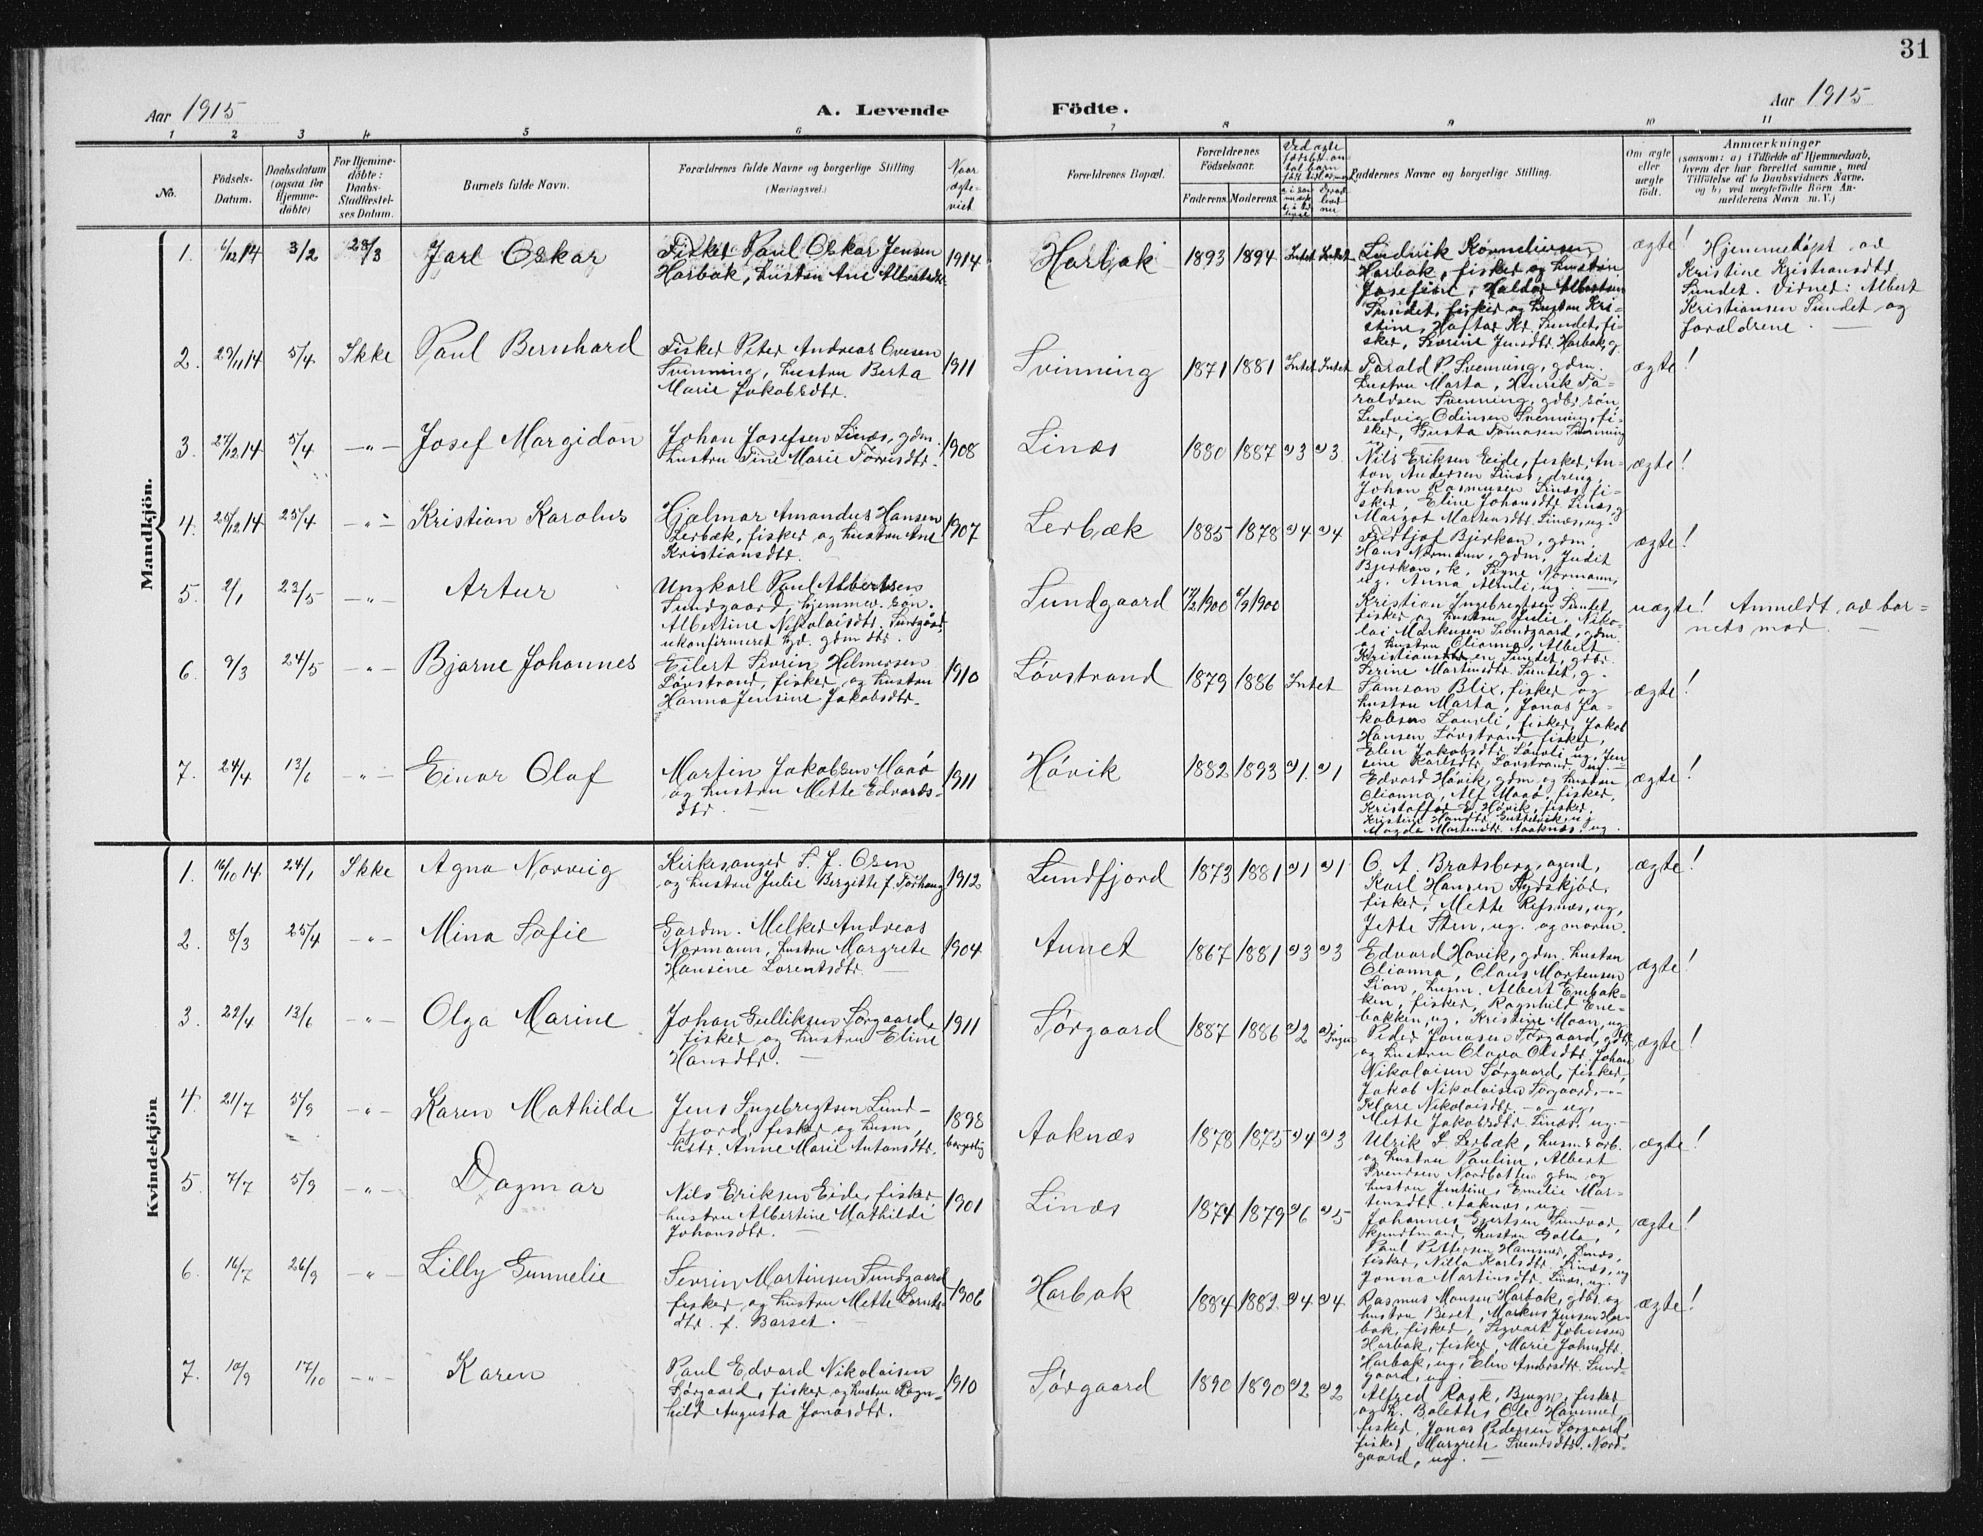 31
Aar 1915
A. Levende
Födte.
Aar 1915
1 2 3 4 5 6 7 8 9 10 11
No.
Födsels-
Datum.
Daabsdatum
(ogsaa for
Hjemme-
döbte)
For Hjemme-
döbte:
Daabs-
Stadfæstel-
ses Datum.
Barnets fulde Navn.
Forældrenes fulde Navne og borgerlige Stilling
(Næringsvei.)
Naar
ægte-
viet
Forældrenes Bopæl.
Forældrenes
Födselsaar.
Faderens. Moderens.
Faddernes Navne og borgerlige Stilling.
Om ægte
eller
uægte
født.
Anmærkninger
(saasom: a) i Tilfælde af Hjemmedaab,
hvem der har forrettet samme, med
Tilföielse af to Daabsvidners Navne,
og b) ved uægtefödte Börn An-
melderens Navn m. V.)
Mandkjön.
1. 6/12 14 3/2 28/3 Jarl Oskar
Fisker Paul Oskar Jensen
Harbak, hustru Ane Albertsdtr.
1914 Harbak 1893 1894 Intet Intet
Ludvik Korneliusen
Harbak, fisker og hustru
Josefine, Haldor Albertsen
Sundet, fisker og hustru Kri-
stine, Haftor Kr. Sundet, fi-
sker, Severine Jensdtr. Harbak, g.
ægte!
Hjemmedøpt av
Kristine Kristiansdtr.
Sundet. Vidner: Albert
Kristiansen Sundet og
forældrene.
2. 29/11 14 5/4 Ikke Paul Bernhard
Fisker Peter Andreas Ovesen
Svinning, hustru Berta
Marie Jakobsdtr.
1911 Svinning 1871 1881 Intet Intet
Tarald P. Svenning, gdm.
hustru Marta, Henrik Ta-
raldsen Svenning, gdbr. søn
Ludvig Odinsen Svenning, fi-
sker, Berta Tomasen Svenning
ug.
ægte!
3. 27/12 14 5/4 -"- Josef Margidon
Johan Josefsen Linæs, gdm.
hustru Tine Marie Tørrisdtr.
1908 Linæs 1880 1887 a) 3 a) 3
Nils Eriksen Eide, fisker, An-
ton Andersen Linæs, dreng,
Johan Rasmusen Linæs, fi-
sker, Eline Johansdtr. Linæs, g
Margot Martensdtr. Linæs, ug.
ægte!
4. 25/12 14 25/4 -"- Kristian Karolus
Hjalmar Amandus Hansen
Lerbæk, fisker og hustru Ane
Kristiansdtr.
1907 Lerbæk 1885 1878 a) 4 a) 4
Fridtjof Bjerkan, gdm.
Hans Normann, gdm, Judit
Bjerkan, h. Signe Normann,
ug. Anna Almli, ug.
ægte!
5. 2/1 23/5 -"- Artur
Ungkarl Paul Albertsen
Sundgaard, hjemmev. søn.
Albertine Nikolaisdtr. Sundgård,
ukonfirmeret hjd. gdm dtr.
Sundgaard 17/2 1900 6/9 1900
Kristian Ingebregtsen Sundet
fisker og hustru Julie, Niko-
lai Markusen Sundgaard, gdm.
og hustru Olianna, Albert
Kristiansen Sundet, gdbr.
Serine Martinsdtr. Sundet, g.
uægte! Anmeldt av bar-
nets mor.
6. 9/3 24/5 -"- Bjarne Johannes
Eilert Sivrin Helmersen
Løvstrand, fisker og hustru
Hanna Jensine Jakobsdtr.
1910 Løvstrand 1879 1886 Intet
Samson Blix, fisker og
hustru Marta, Jonas Ja-
kobsen Løvli, fisker, Jakob
Hansen Løvstrand, fisker,
Elen Jakobsdtr. Løvli ug, Jen-
sine Karlsdtr. Løvstrand, ug.
ægte!
7. 24/4 13/6 -"- Einar Olaf
Martin Jakobsen Maaø
og hustru Mette Edvards-
dtr.
1911 Høvik 1882 1893 a) 1. a) 1
Edvard Høvik, gdm og hustru
Olianna, Alf Maaø, fisker,
Kristoffer E. Høvik, fisker,
Magda Mortensdtr. Aaknæs, ug.
ægte!
Kvindekjön
1. 16/10 14. 24/1 Ikke Agna Norveig
Kirkesanger S. J. Osen
og hustru Julie Bergitte f. Tørhaug
1912 Sundfjord 1873 1881 a) 1 a) 1
O. A. Bratsberg, agent,
Karl Hansen Rydskjør,
fisker, Mette Refsnæs, ug,
Jette Sten, ug. og moren.
ægte!
2. 8/3 25/4 -"- Mina Sofie
Gardm. Melker Andreas
Normann, hustru Margrete
Hansine Lorentsdtr.
1904 Aunet 1867 1881 a) 3 a) 3
Edvard Høvik, gdm. hustru
Olianna, Claus Mortensen
Lian, husm. Albert Enebak-
ken, fisker, Ragnhild Ene-
bakken, ug, Kristine Moan, ug
ægte!
3. 22/4 13/6 -"- Olga Marine
Johan Gulliksen Sørgaard,
fisker og hustru Eline
Hansdtr.
1911 Sørgaard 1887 1886 a) 2 a) Ingen
Peder Jonasen Sørgaard, gdbr
og hustru Olava Olsdtr. Johan
Nikolaisen Sørgaard, fisker,
Jakob Nikolaisen Sørgaard, -"-
Klare Nikolaisdtr. -"- ug,
Mette Jakobsdtr. Linæs, ug.
ægte!
4. 21/7 5/9 -"- Karen Mathilde
Jens Ingebregtsen Lund-
fjord, fisker og husm,
hstr. Anne Marie Antonsdtr.
1898
borgerlig
Aaknæs 1878 1875 a) 4 a) 3
Ulrik S. Lerbæk, husm & arb.
og hustru Pauline, Albert
Svendsen Nordbotten gdm og
hustru Jentine, Emilie Mar-
tensdtr. Aaknæs, ug
ægte!
5. 7/7 5/9 -"- Dagmar
Nils Eriksen Eide, fisker
hustru Albertine Mathilde
Johansdtr.
1901 Linæs 1874 1879 a) 6 a) 5
Johannes Gjertsen Sundvor,
hustru Golla,
Paul Pettersen Hammer, Linæs,
fisker, Nilla Karlsdtr. Linæs, ug
Jonna Martinsdtr. Linæs, ug.
ægte!
6. 16/7 26/9 -"- Lilly Gunnelie
Sevrin Martinsen Sundgaard
fisker og hustru Mette Lorents-
dtr. f. Barset.
1906 Harbak 1884 1882 a) 4 a) 4
Rasmus Monsen Harbak, gdbr. og
hustru Beret, Markus Jensen Har-
bak, fisker, Sigvart Johnsen
Harbak, fisker, Marie Johnsdtr.
Harbak, ug, Elen Andersdtr. Sund-
gaard, ug.
ægte!
7. 10/9 17/10 -"- Karen
Paul Edvard Nikolaisen
Sørgaard, fisker og hustru Ragn-
hild Augusta Jonasdtr.
1910 Sørgaard 1890 1890 a) 2 a) 2
Alfred Rask, Bjugn, fisker
og h. Bolette, Ole Hammer,
fisker, Jonas Pedersen Sørgaard,
fisker, Margrete Svendsdtr. Nord-
gaard, ug.